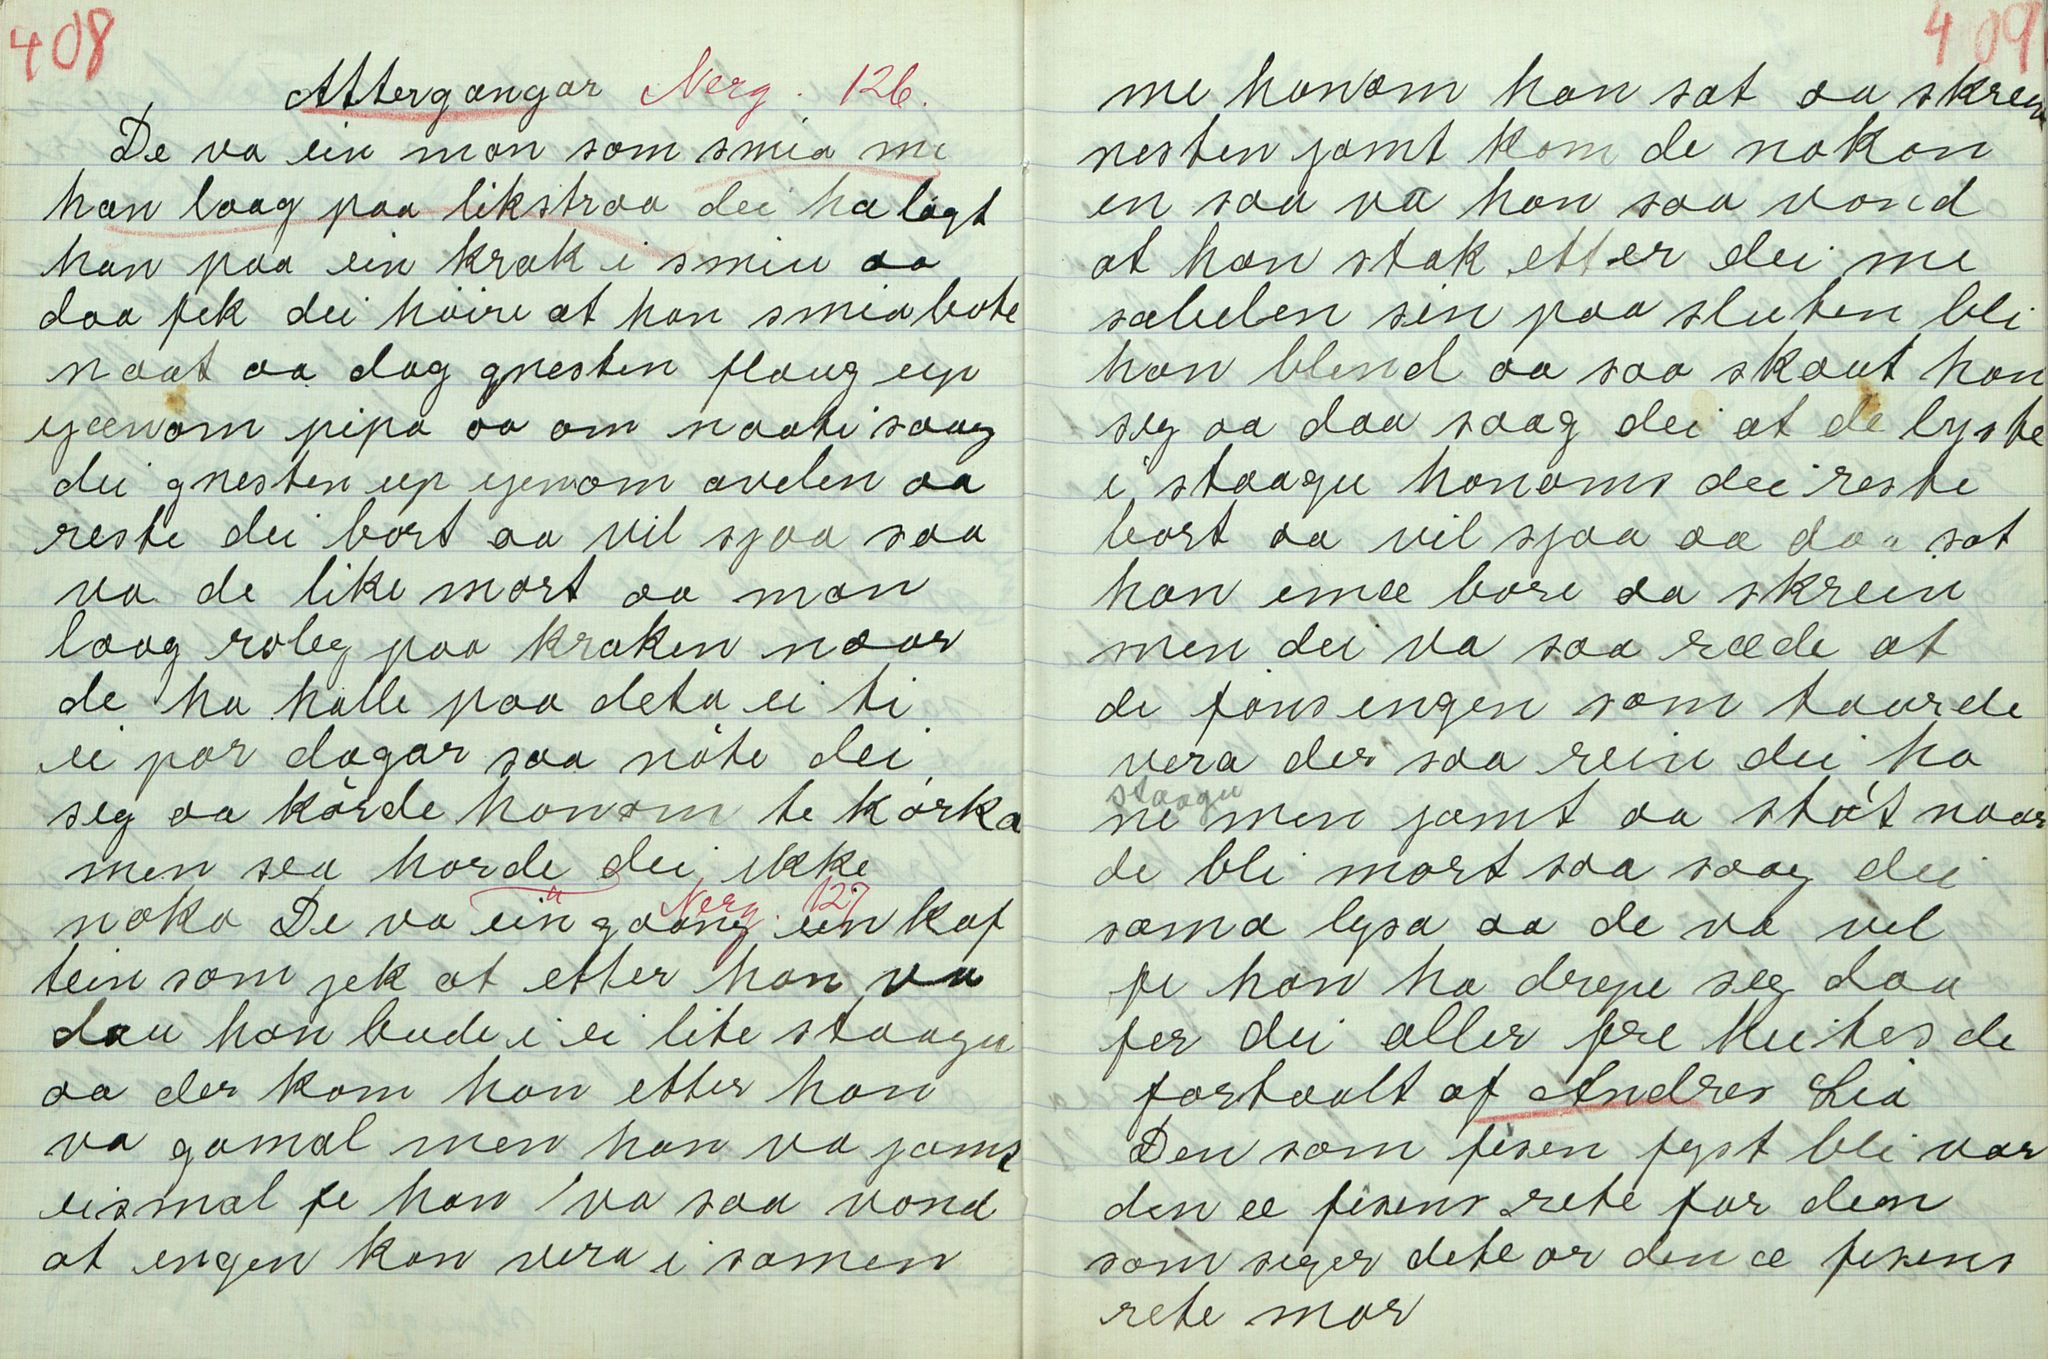 408
Attergangar Nerg. 126.
De va ein man som smia me
han laag paa likstraa dei ha lagt
han paa ein krak i smiu aa
daa fek dei höire at han smia bote
naat aa dag gnesten flaug up
gjenom pipa aa om naati saag
dei gnesten up gjenom avelen aa
reste dei bort aa vil sjaa saa
va de like mort aa man
laag roleg paa kraken naar
de ha halle paa deta ei ti
ei par dagar saa nöte dei
seg aa körde honom te körka
men sea horde dei ikke
noko De va ein gaang ein kap Nerg. 127
tein som jek at etter han va
dau han bude i ei lite staagu
aa der kom han etter han
va gamal men han va jamt
eismal fe han va saa vond
at engen kan vera i samen
409
me honom han sat aa skrein
nesten jamt kom de nokon
en saa va han saa vond
at han stak etter dei me
sabelen sin paa sluten bli
han blend aa saa skaut han
seg aa daa saag dei at de lyste
i staagu honoms dei reste
bort aa vil sjaa aa daa sat
han emæ bore aa skrein
men dei va saa ræde at
de fans engen som taarde
vera der saa rein dei ha
staagu
ne men jamt aa støt naar
de bli mort saa saag dei
sama lysa aa de va vel
fe han ha drepe seg daa
fer dei aller fre heites de
fortaalt af Andres Lia
Den som fisen fyst bli var
den æ fisens rete far den
som seger dete ar den æ fisens
rete mor